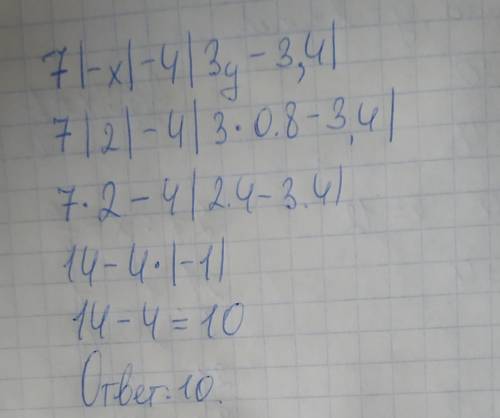 7|-x|-4|3y-3,4|
7|2|-4|3·0.8-3,4|
7·2-4|2.4-3.4|
14-4·|-1|
14-4=10
Ответ:10.